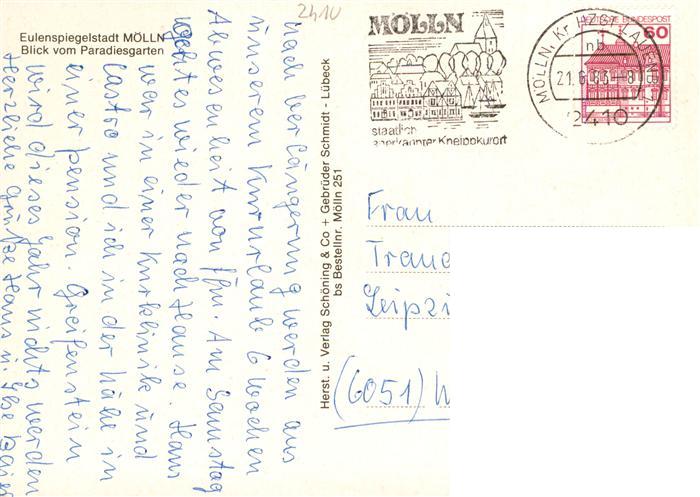 2410
Eulenspiegelstadt MÖLLN
Blick vom Paradiesgarten
nach Verlängerung werden aus
unserem Kururlaub 6 Wochen
Abwesenheit von Am Samstag
geht es wieder nach Hause. Hans
war in einer Kurklinik und
ich in der Nähe in
einer Pension. Greifenstein
wird dieses Jahr nichts werden
Herzliche Grüße Hans u.
Herst. u. Verlag Schöning & Co + Gebrüder Schmidt - Lübeck
bs Bestellnr. Mölln 251
MÖLLN
staatlich
anerkannter Kneippkurort
MÖLLN, Kr HZGT LAUENB
nb
21.6.83.-8
2410
DEUTSCHE BUNDESPOST
60
Frau
Leipzi
(6051) W